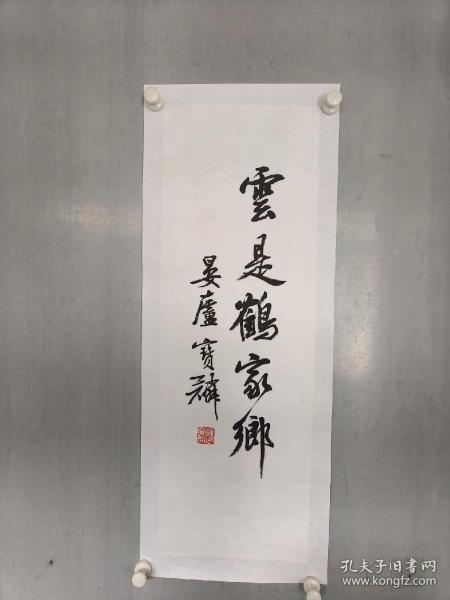 雲是鶴家鄉
晏廬寶麟
孔夫子旧书网
www.kongfz.com